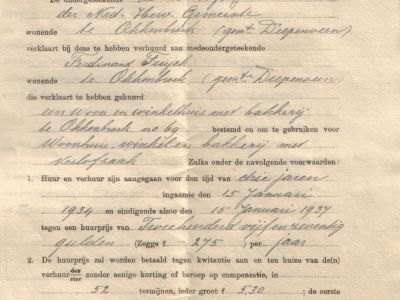 De ondergeteekende
der Ned. Herv. Gemeente
wonende te Okkenbroek (gemt. Diepenveen)
verklaart bij deze te hebben verhuurd aan medeondergeteekende
Ferdinand
wonende te Okkenbroek (gemt. Diepenveen)
die verklaart te hebben gehuurd
een woon en winkelhuis met bakkerij
te Okkenbroek no 69 bestemd en om te gebruiken voor
Woonhuis, winkel en bakkerij met
verlofzaak Zulks onder de navolgende voorwaarden:
1. Huur en verhuur zijn aangegaan voor den tijd van drie jaren
ingaande den 15 Januari
1934 en eindigende alzoo den 15 Januari 1937
tegen een huurprijs van Tweehonderd vijf en zeventig
gulden (Zegge f 275 ) per jaar
2. De huurprijs zal worden betaald tegen kwitantie aan en ten huize van de(n)
verhuurder/ster zonder eenige korting of beroep op compensatie, in
52 termijnen, ieder groot f 5,30 ; de eerste